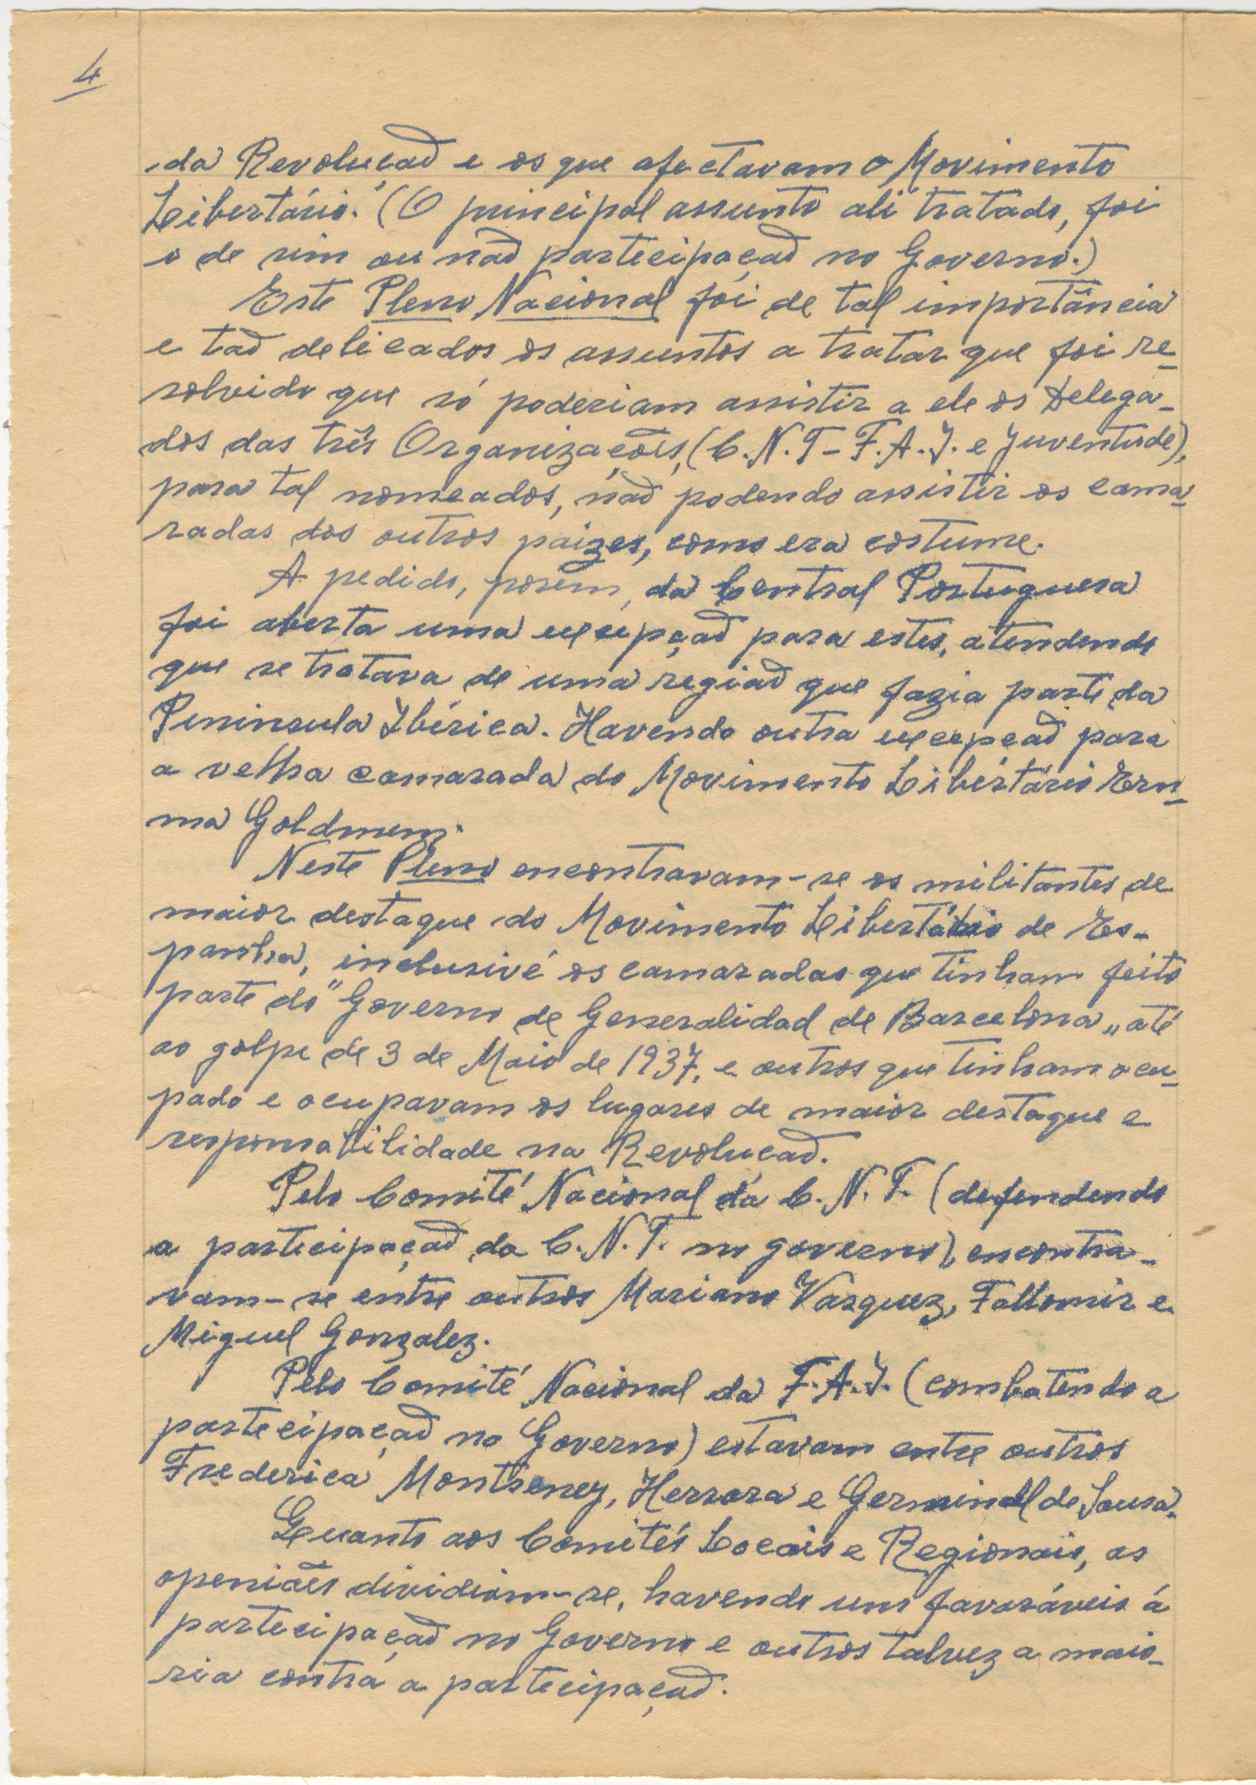 4
da Revolução e os que afectavam o Movimento
Libertário. (O principal assunto ali tratado, foi
o de sim ou não participação no Governo.)
Este Pleno Nacional foi de tal importância
e tão delicados os assuntos a tratar que foi re-
solvido que só poderiam assistir a ele os Delega-
dos das três Organizações, (C.N.T - F.A.I. e Juventude),
para tal nomeados, não podendo assistir os cama-
radas dos outros paizes, como era costume.
A pedido, porém, da Central Portuguesa
foi aberta uma excepção para estes, atendendo
que se tratava de uma região que fazia parte da
Peninsula Ibérica. Havendo outra excepção para
a velha camarada do Movimento Libertário Em-
ma Goldmem.
Neste Pleno encontravam-se os militantes de
maior destaque do Movimento Libertário de Es-
panha, inclusivé os camaradas que tinham feito
parte do "Governo de Generalidad de Barcelona" até
ao golpe de 3 de Maio de 1937, e outros que tinham ocu-
pado e ocupavam os lugares de maior destaque e
responsabilidade na Revolução.
Pelo Comité Nacional da C.N.T. (defendendo
a participação da C.N.T. no governo) encontra-
vam-se entre outros Mariano Vasquez, Fallomir e
Miguel Gonzalez.
Pelo Comité Nacional da F.A.I. (combatendo a
participação no Governo) estavam entre outros
Frederica Montseney, Herrera e Germinal de Sousa.
Quanto aos Comités Locais e Regionais, as
openiões dividiam-se, havendo um favoráveis á
participação no Governo e outros talvez a maio-
ria contra a participação.